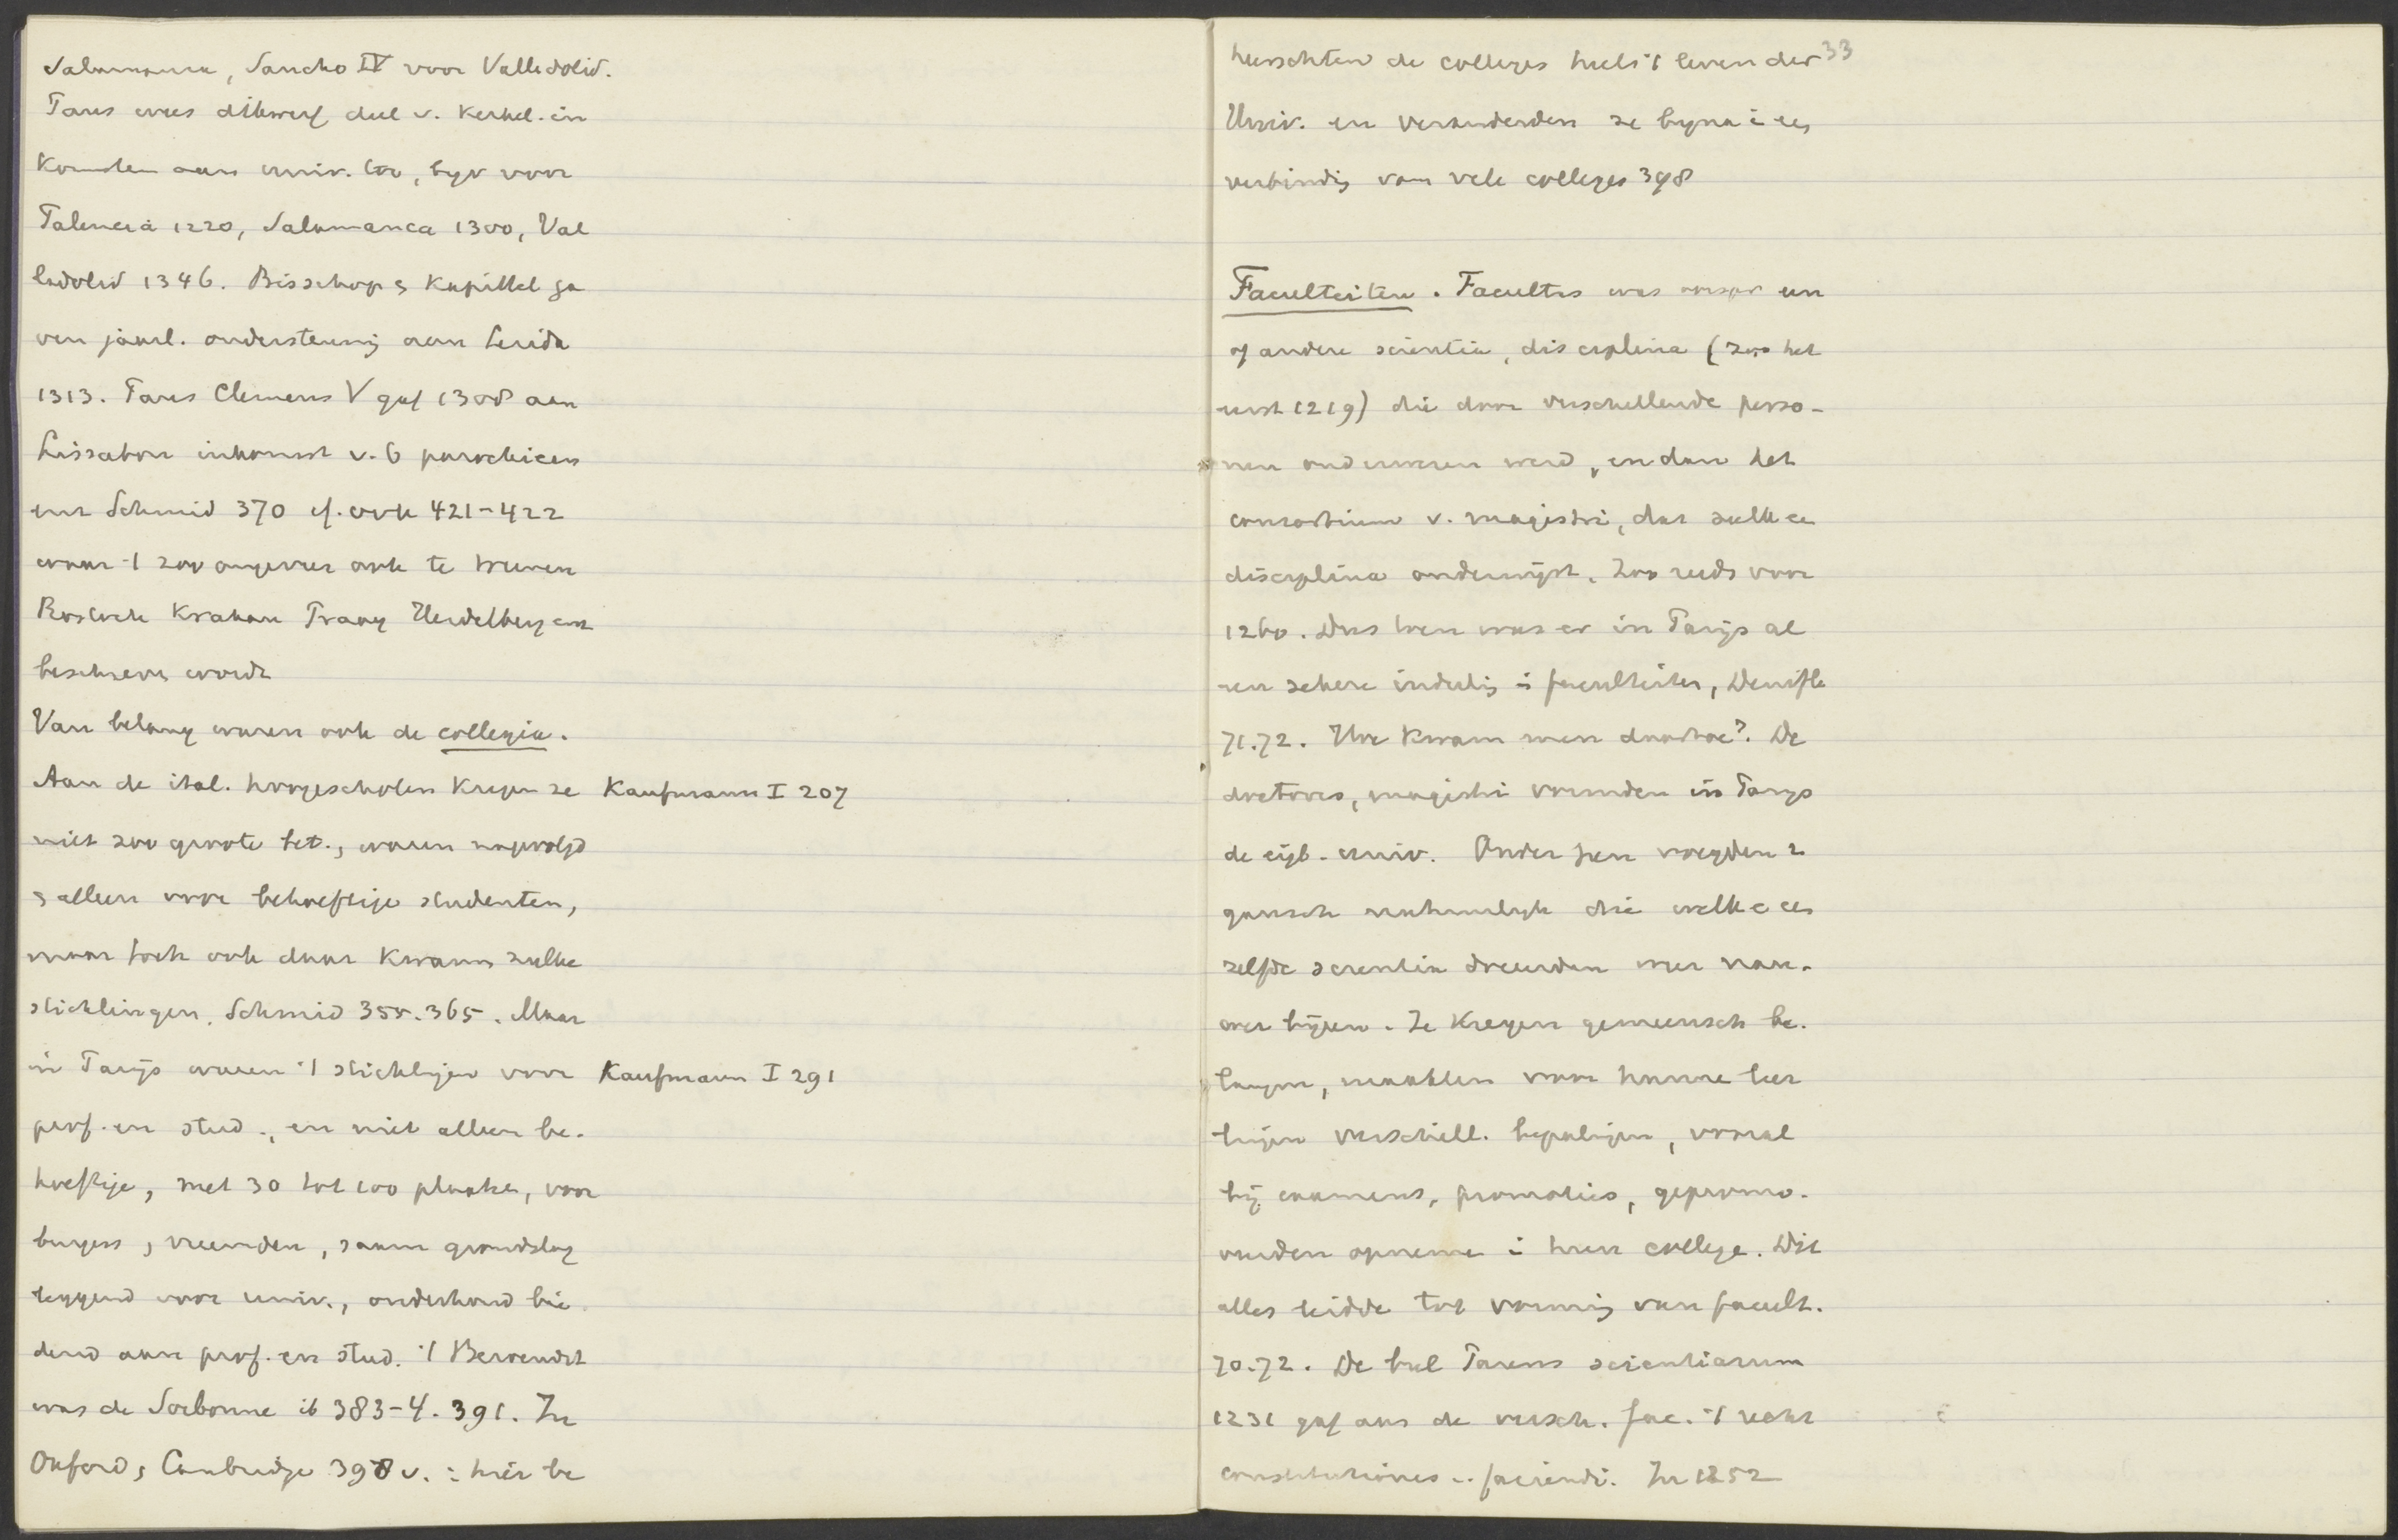 Salamanca, Sancho IV voor Valledolid.
Paus wees dikwerf deel v. kerkel. in
komsten aan univ. toe, byv voor
Palencia 1220, Salamanca 1300, Val
ladolid 1346. Bisschop & Kapittel ga
ven jaarl. ondersteuning aan Lerida
1313. Paus Clemens V gaf 1308 aan
Lissabon inkomst v. 6 parochieen
enz Schmid 370 cf. ook 421-422
waar 't zoo ongeveer ook te
Rostock Krakau Praag Heidelberg enz
beschreven wordt
Van belang waren ook de collegia.
Aan de ital. hoogescholen kregen ze Kaufmann I 207
niet zoo groote bet., waren nagevolgd
& alleen voor behoeftige studenten,
maar toch ook daar kwamen zulke
stichtingen. Schmid 355. 365. Maar
in Parijs waren 't stichtingen voor Kaufmann I 291
prof. en stud., en niet alleen be-
hoeftige, met 30 tot 100 plaatsen, voor
burgers & vreemden, saam grondslag
leggend voor univ., onderhoud bie
dend aan prof. en stud. 't Beroemdst
was de Sorbonne ib 383-4. 391. In
Oxford & Cambridge 398 v. : hier be
33
heerschten de colleges heel 't leven der
Univ. en veranderden ze byna i een
verbinding van vele colleges 398
Faculteiten. Facultas was een
of andere scientia, disciplina (zoo het
eerst 1219) die door verschillende perso-
nen onderwezen werd, en dan het
consortium v. magistri, dat zulk een
disciplina onderwijst. Zoo reeds voor
1260. Dus toen was er in Parijs al
een zekere indeeling i faculteiten, Denifle
71.72. Hoe kwam men daartoe? De
doctores, magistri vormden in Parys
de eigl. univ. Onder hen voegden z
gansch natuurlyk die welke een
zelfde scientia doceerden meer nau-
wer bijeen. Ze kregen gemeensch be-
langen, maakten voor hunne leer
lingen verschill. bepalingen, vooral
bij examens, promoties, gepromo-
veerden opnemen i hun college. Dit
alles leidde tot vorming van facult.
70.72. De bul Parens scientiarum
1231 gaf aan de versch. fac. 't recht
constitutiones .. faciendi. In 1252